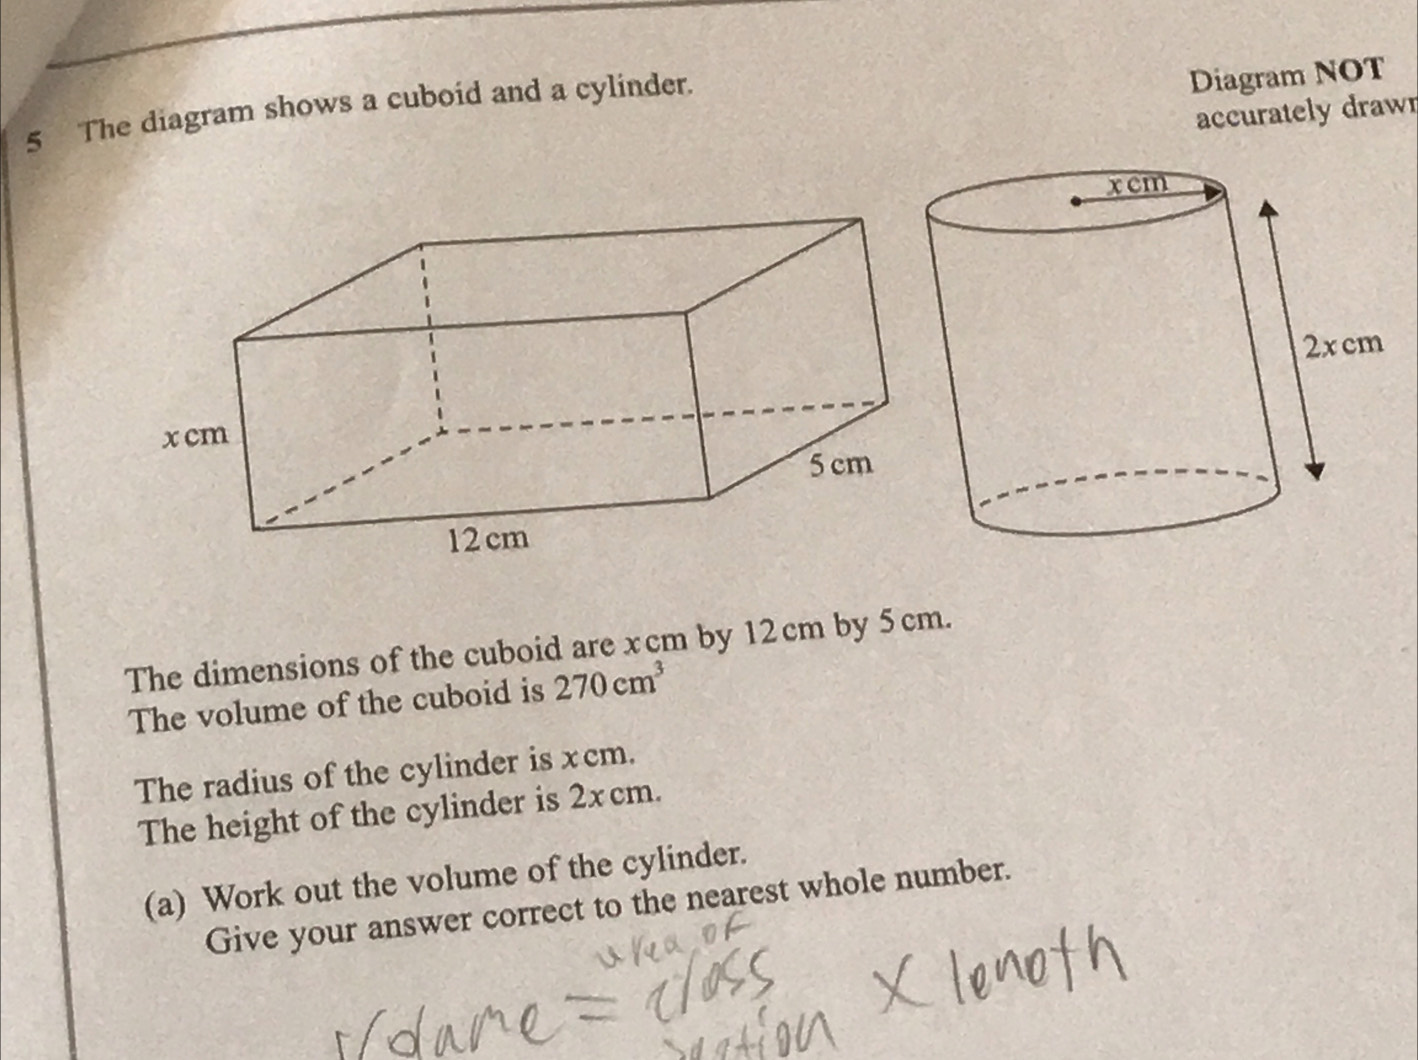 Diagram NOT
accurately drawn
5 The diagram shows a cuboid and a cylinder.
x cm
2x cm
x cm
5 cm
12 cm
The dimensions of the cuboid are x cm by 12 cm by 5 cm.
The volume of the cuboid is 270 cm³
The radius of the cylinder is x cm.
The height of the cylinder is 2x cm.
(a) Work out the volume of the cylinder.
Give your answer correct to the nearest whole number.
area of
Volume = cross × length
section